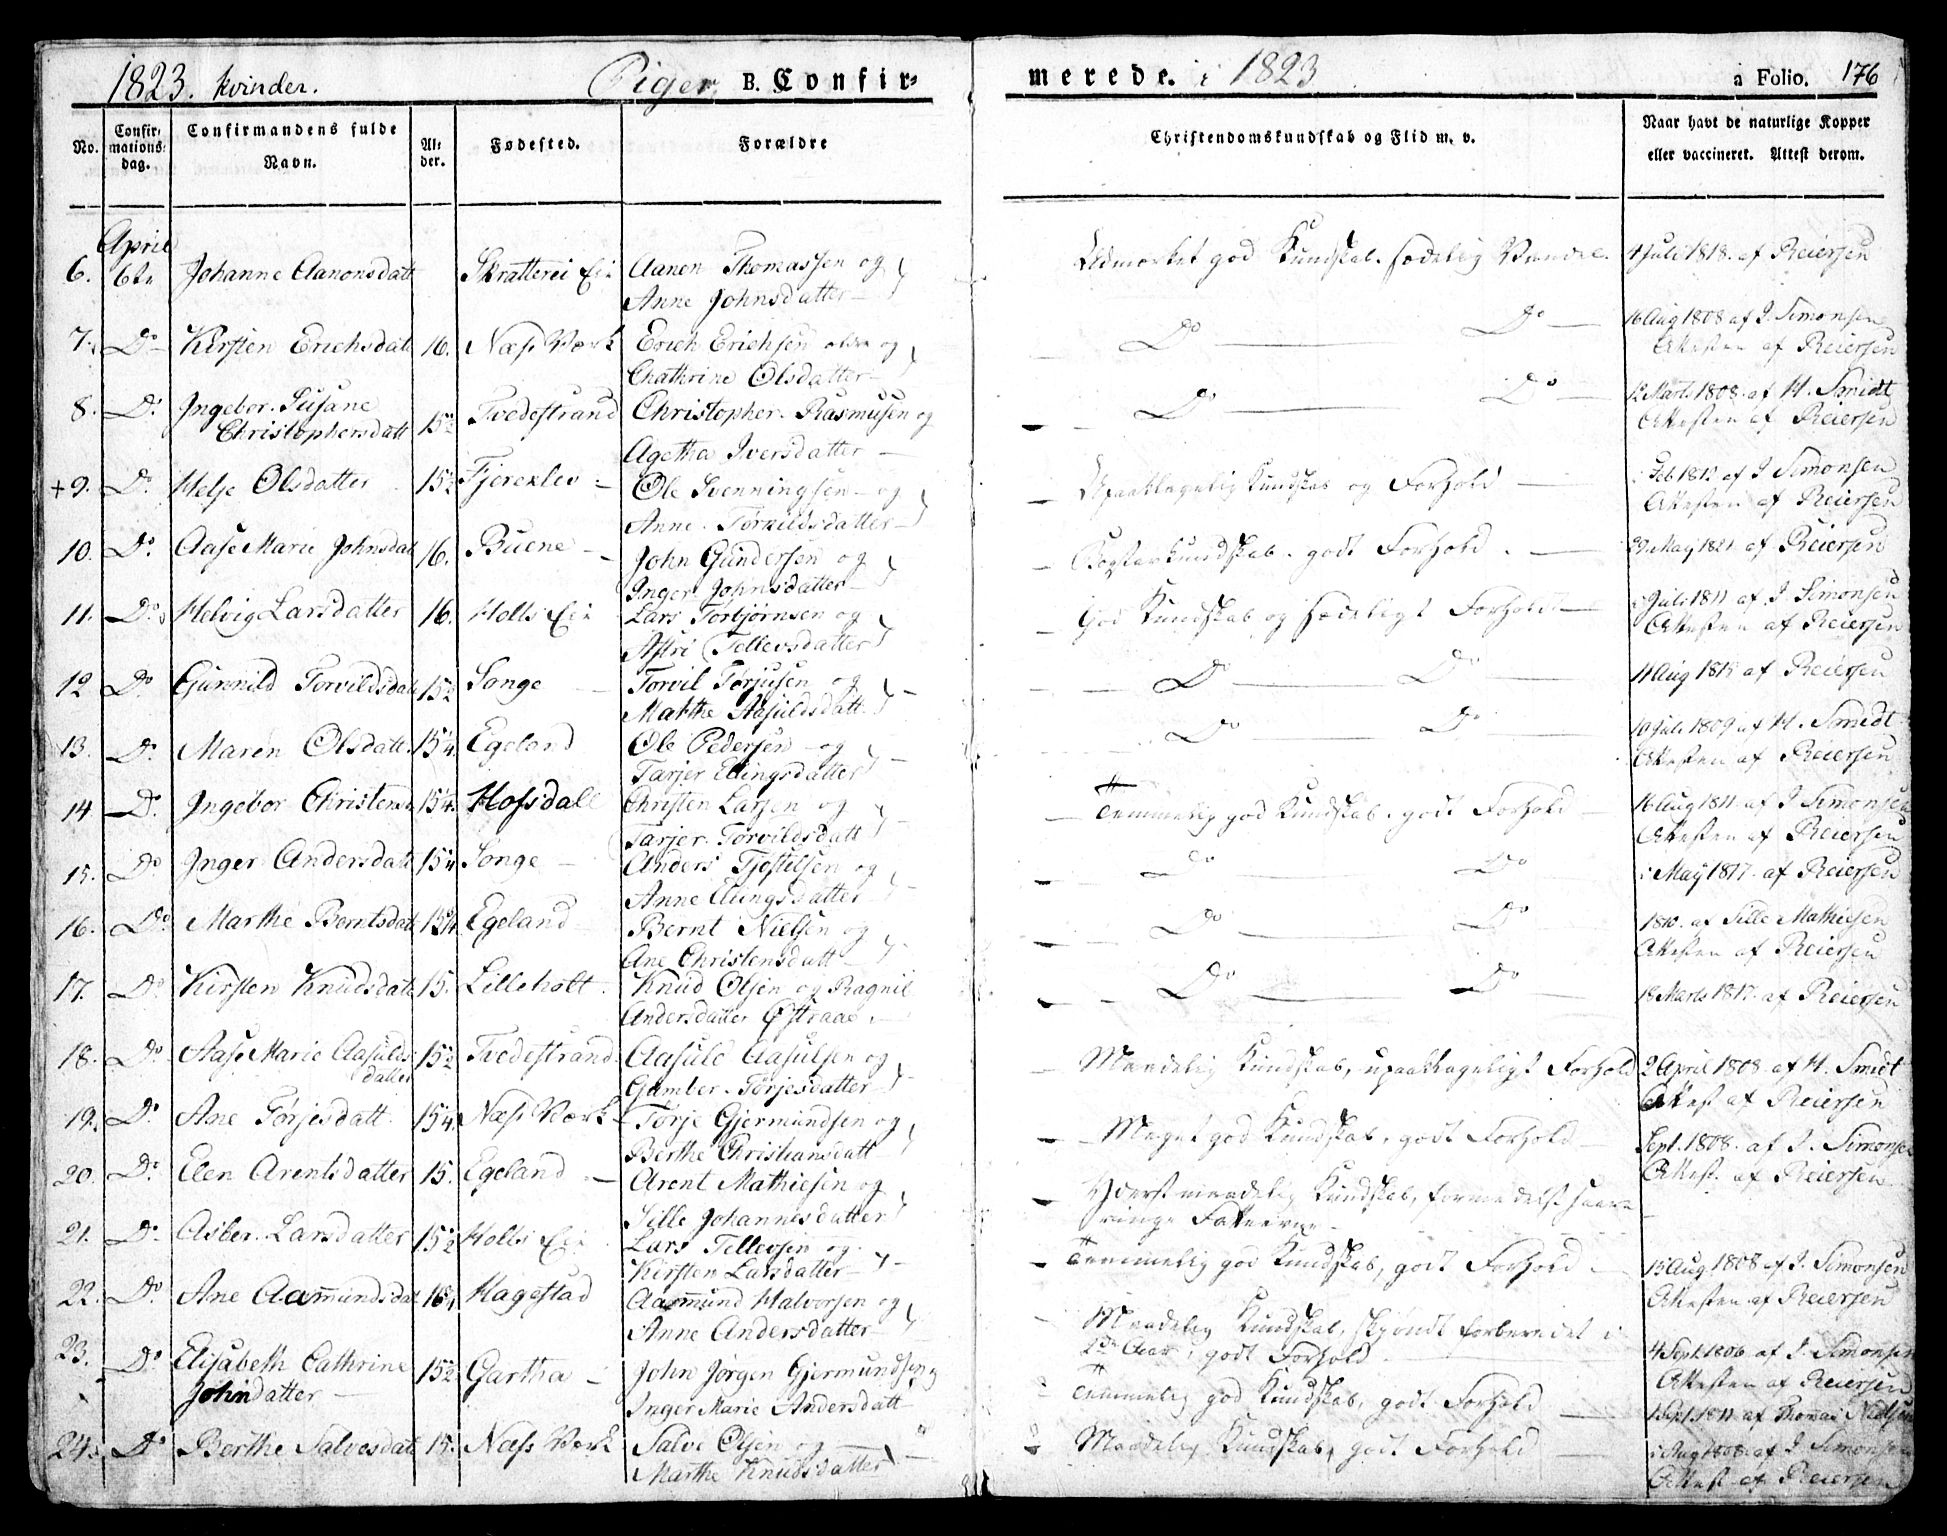 1823. Kvinder. Piger B. Confir-
merede. i 1823 a Folio. 176
No. Confirmationsdag. Confirmandens fulde Navn. Alder. Fødested. Forældre Christendomskundskab og Flid m. v. Naar havt de naturlige Kopper eller vaccineret. Attest derom.
April
6. 6te Johanne Aanonsdatt Skratterei Aanon Thomassen og god Kundskab. Juli 1818. af Reiersen
Anne Johnsdatter
7. Do Kirsten Erichsdatt 16. Næss Værk Erich Erichsen og Do Do 16 Aug 1808 af J. Simonsen
Chathrine Olsdatter Attesten af Reiersen
8. Do Ingebor. Susane Tvedestrand Christopher Rasmusen og Do Do 12 Marts 1808. af H. Smidt
Christophersdatt 15½ Agetha Iversdatter Attesten af Reiersen
+9. Do. Helje Olsdatter 15½ Fjereklev Ole Svenningsen og Upaaklagelig Kundskab og Forhold Feb 1812 af J Simonsen
Anne Torkildsdatter Attesten af Reiersen
10. Do. Aase Marie Johnsdat 16. Buene John Gundersen og Kundskab. godt Forhold. 29 May 1821 af Reiersen
Inger Johnsdatter
11. Do. Helvig Larsdatter 16. Holts Lars Torbjørnsen og God Kundskab og Sædeligt Forhold Juli 1811 af J Simonsen
Astri Tellevsdatter Attesten af Reiersen
12 Do Gunnild Torvildsdatt 15½ Songe Torvil Torjusen og Do Do 11 Aug 1815 af Reiersen
Marthe Aasuldsdatt
13. Do. Maren Olsdatt. 15¼ Egeland Ole Pedersen og Do Do 10 Juli 1809 af H. Smidt
Tarjer Ellingsdatter Attesten af Reiersen
14 Do. Ingebor Christensd 15¼. Hofsdall Christen Larsen og Temmelig god Kundskab. godt Forhold 16 Aug 1811. af J Simonsen
Tarjer Torvildsdatt Attesten af Reiersen
15. Do Inger Andersdatt 15¼ Songe Anders Tjøstelsen og Do Do May 1817. af Reiersen
Anne Ellingsdatter
16. Do. Marthe Berntsdatt Egeland Bernt Nielsen og Do Do 1810. af Sille Mathiesen
Ane Christensdatt Attesten af Reiersen
17. Do Kirsten Knudsdatt 15. Lilleholt. Knud Olsen og Ragnil Do Do 18 Marts 1817. af Reiersen
Andersdatter Østraae
18. Do Aase Marie Aasulds- 15½ Tvedestrand Aasuld Aasulsen og Maadelig Kundskab, upaaklageligt Forhold 2 April 1808 af H. Smidt
datter Gunber Torjesdatter Attest af Reiersen
19. Do Ane Torjesdatt. 15¼. Næss Værk Torje Gjermundsen og Meget god Kundskab, godt Forhold Sept. 1808. af J. Simonsen
Berthe Christiansdatt Attest. af Reiersen
20. Do. Elen Arentsdatter 15. Egeland Arent Mathiesen og Yderst maadelig Kundskab, formedelst
Sille Johannesdatter ringe
21. Do. Asber. Larsdatter 15½ Holts Lars Tellevsen og Temmelig god Kundskab, godt Forhold 15 Aug 1808 af J. Simonsen
Kirsten Larsdatter Attesten af Reiersen
22. Do. Ane Aamundsdat. Hagestad Aasmund Halvorsen og Maadelig Kundskab, skjøndt forberedet i
Anne Andersdatter Aar, godt Forhold
23. Do Elisabeth Cathrine 15½ Gartha John Jørgen Gjermundsen og Temmelig god Kundskab, godt Forhold 4 Sept 1806 af J. Simonsen
Attesten af Reiersen
Johndatter Inger Marie Andersdatt Sept 1811 af Thomas Nielsen
24. Do Berthe Salvesdat 15. Næss Værk Salve Olsen og Maadelig Kundskab, godt Forhold Aug 1808 af J Simonsen
Marthe Knudsdatter Attest af Reiersen